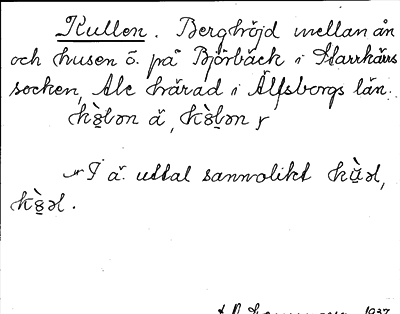 Kullen. Berghöjd mellan ån
och husen ö. på Björbäck i Starrkärrs
socken, Ale härad i Älfsborgs län.
I ä. uttal sannolikt
1937